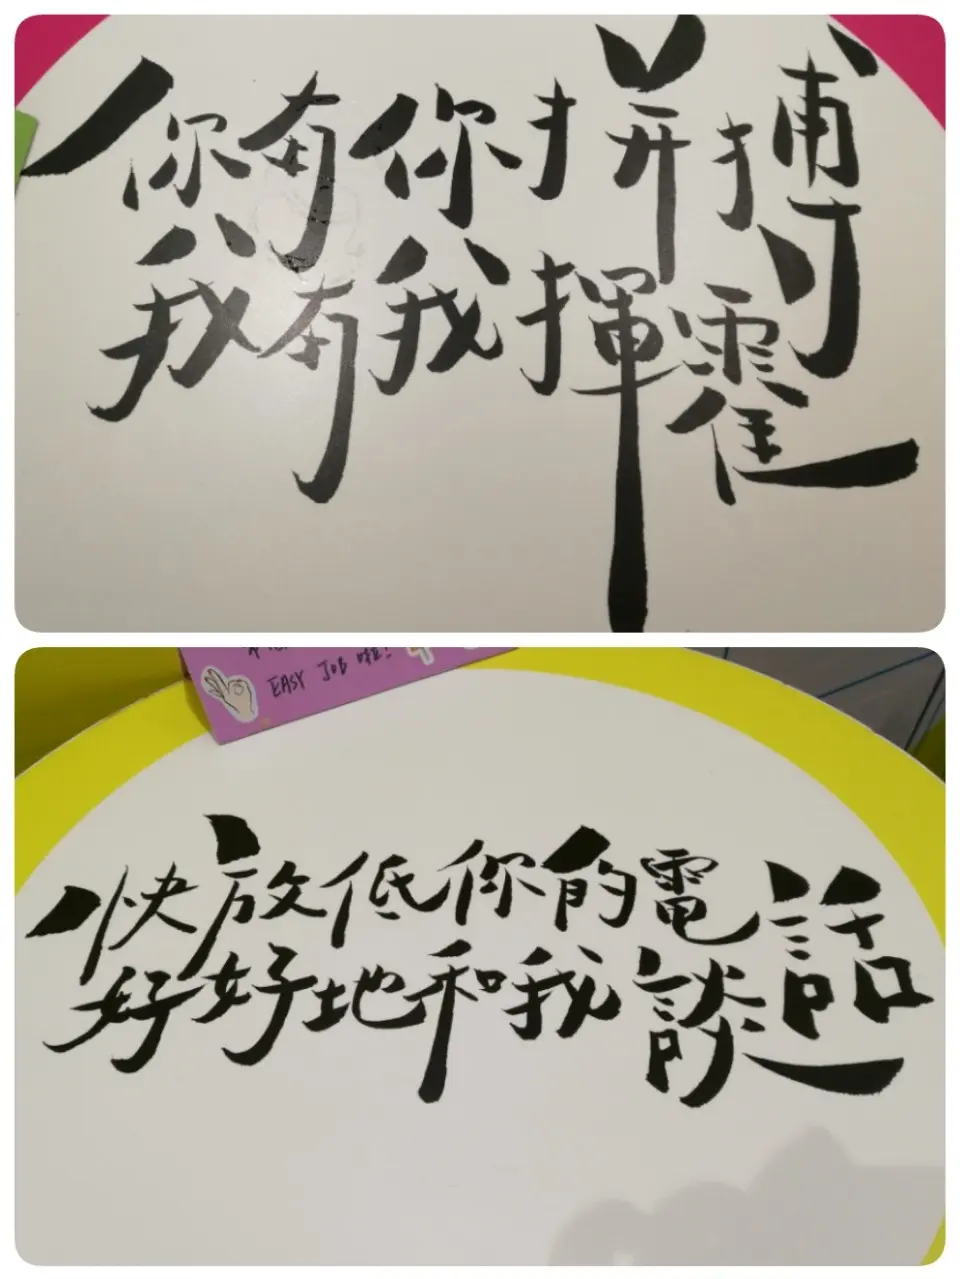 你有你拼搏
我有我揮霍
EASY JOB 啦!
快放低你的電話
好好地和我談